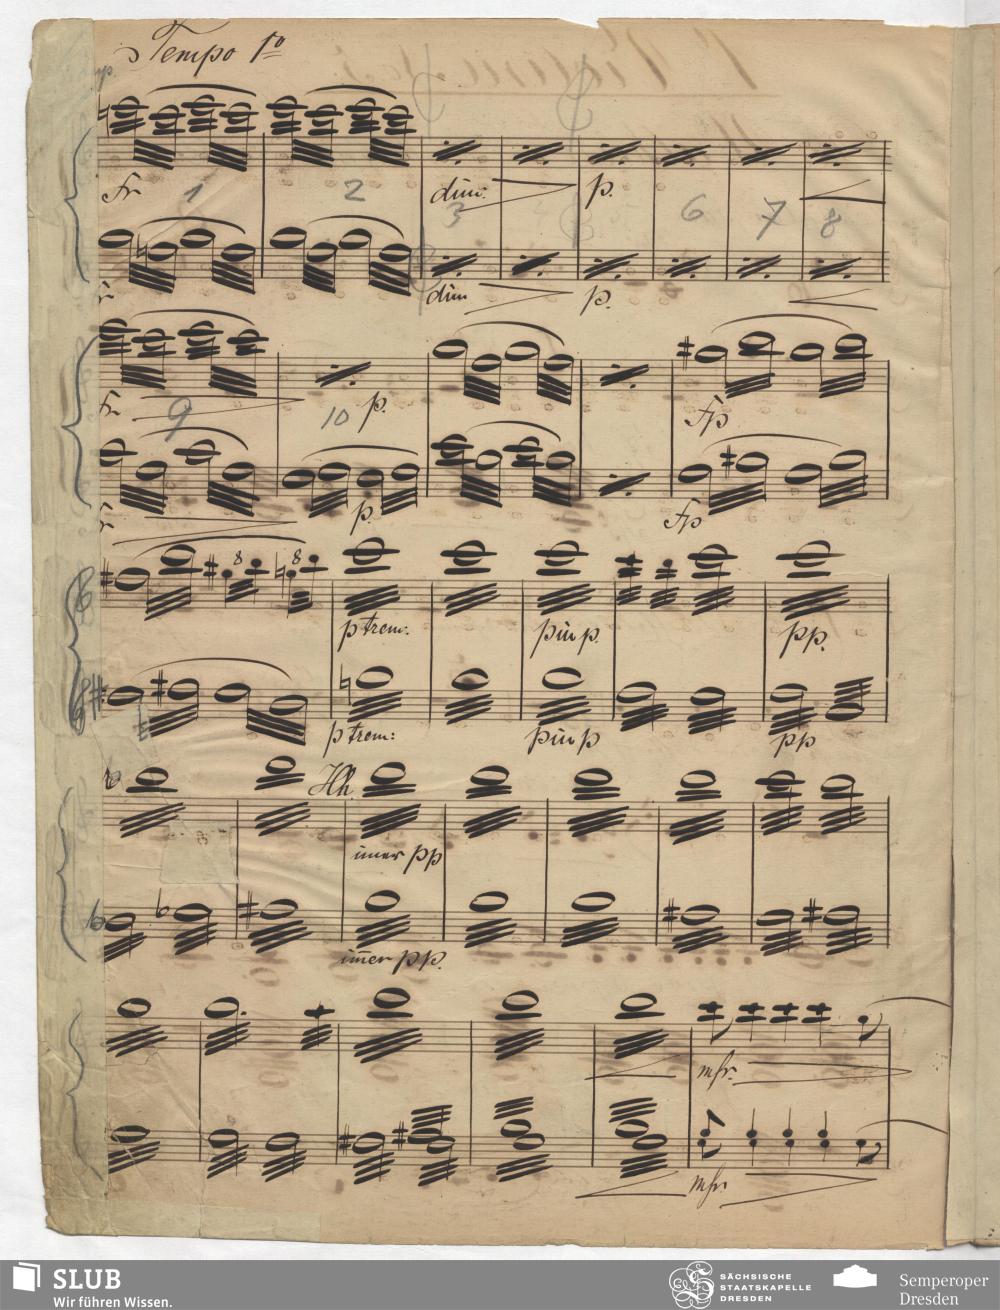 Tempo 1º
fr 1 2 dim: 3 p. 6 7 8
dim p.
fr 9 10 p. fp
fr p. fp
8 8
p trem: piu p. pp.
p trem: piu p pp
Hh.
imer pp
imer pp.
mfr.
mfr.
SLUB
Wir führen Wissen.
SÄCHSISCHE
STAATSKAPELLE
DRESDEN
Semperoper
Dresden